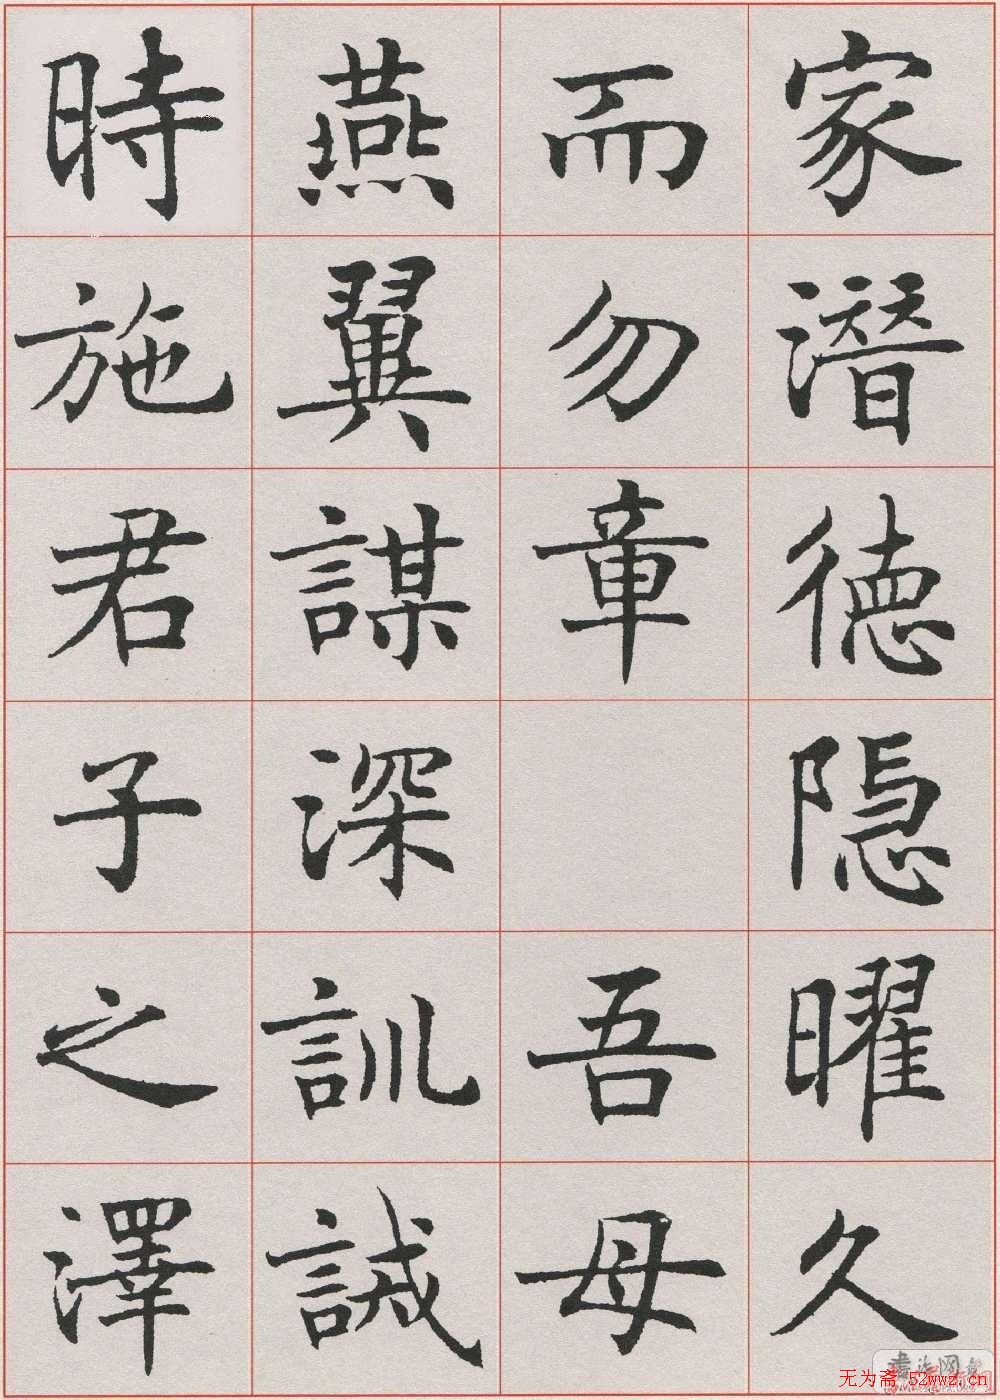 家潛德隱曜久
而勿章 吾母
燕翼謀深訓誡
時施君子之澤
书法网
无为斋 52wwz.cn